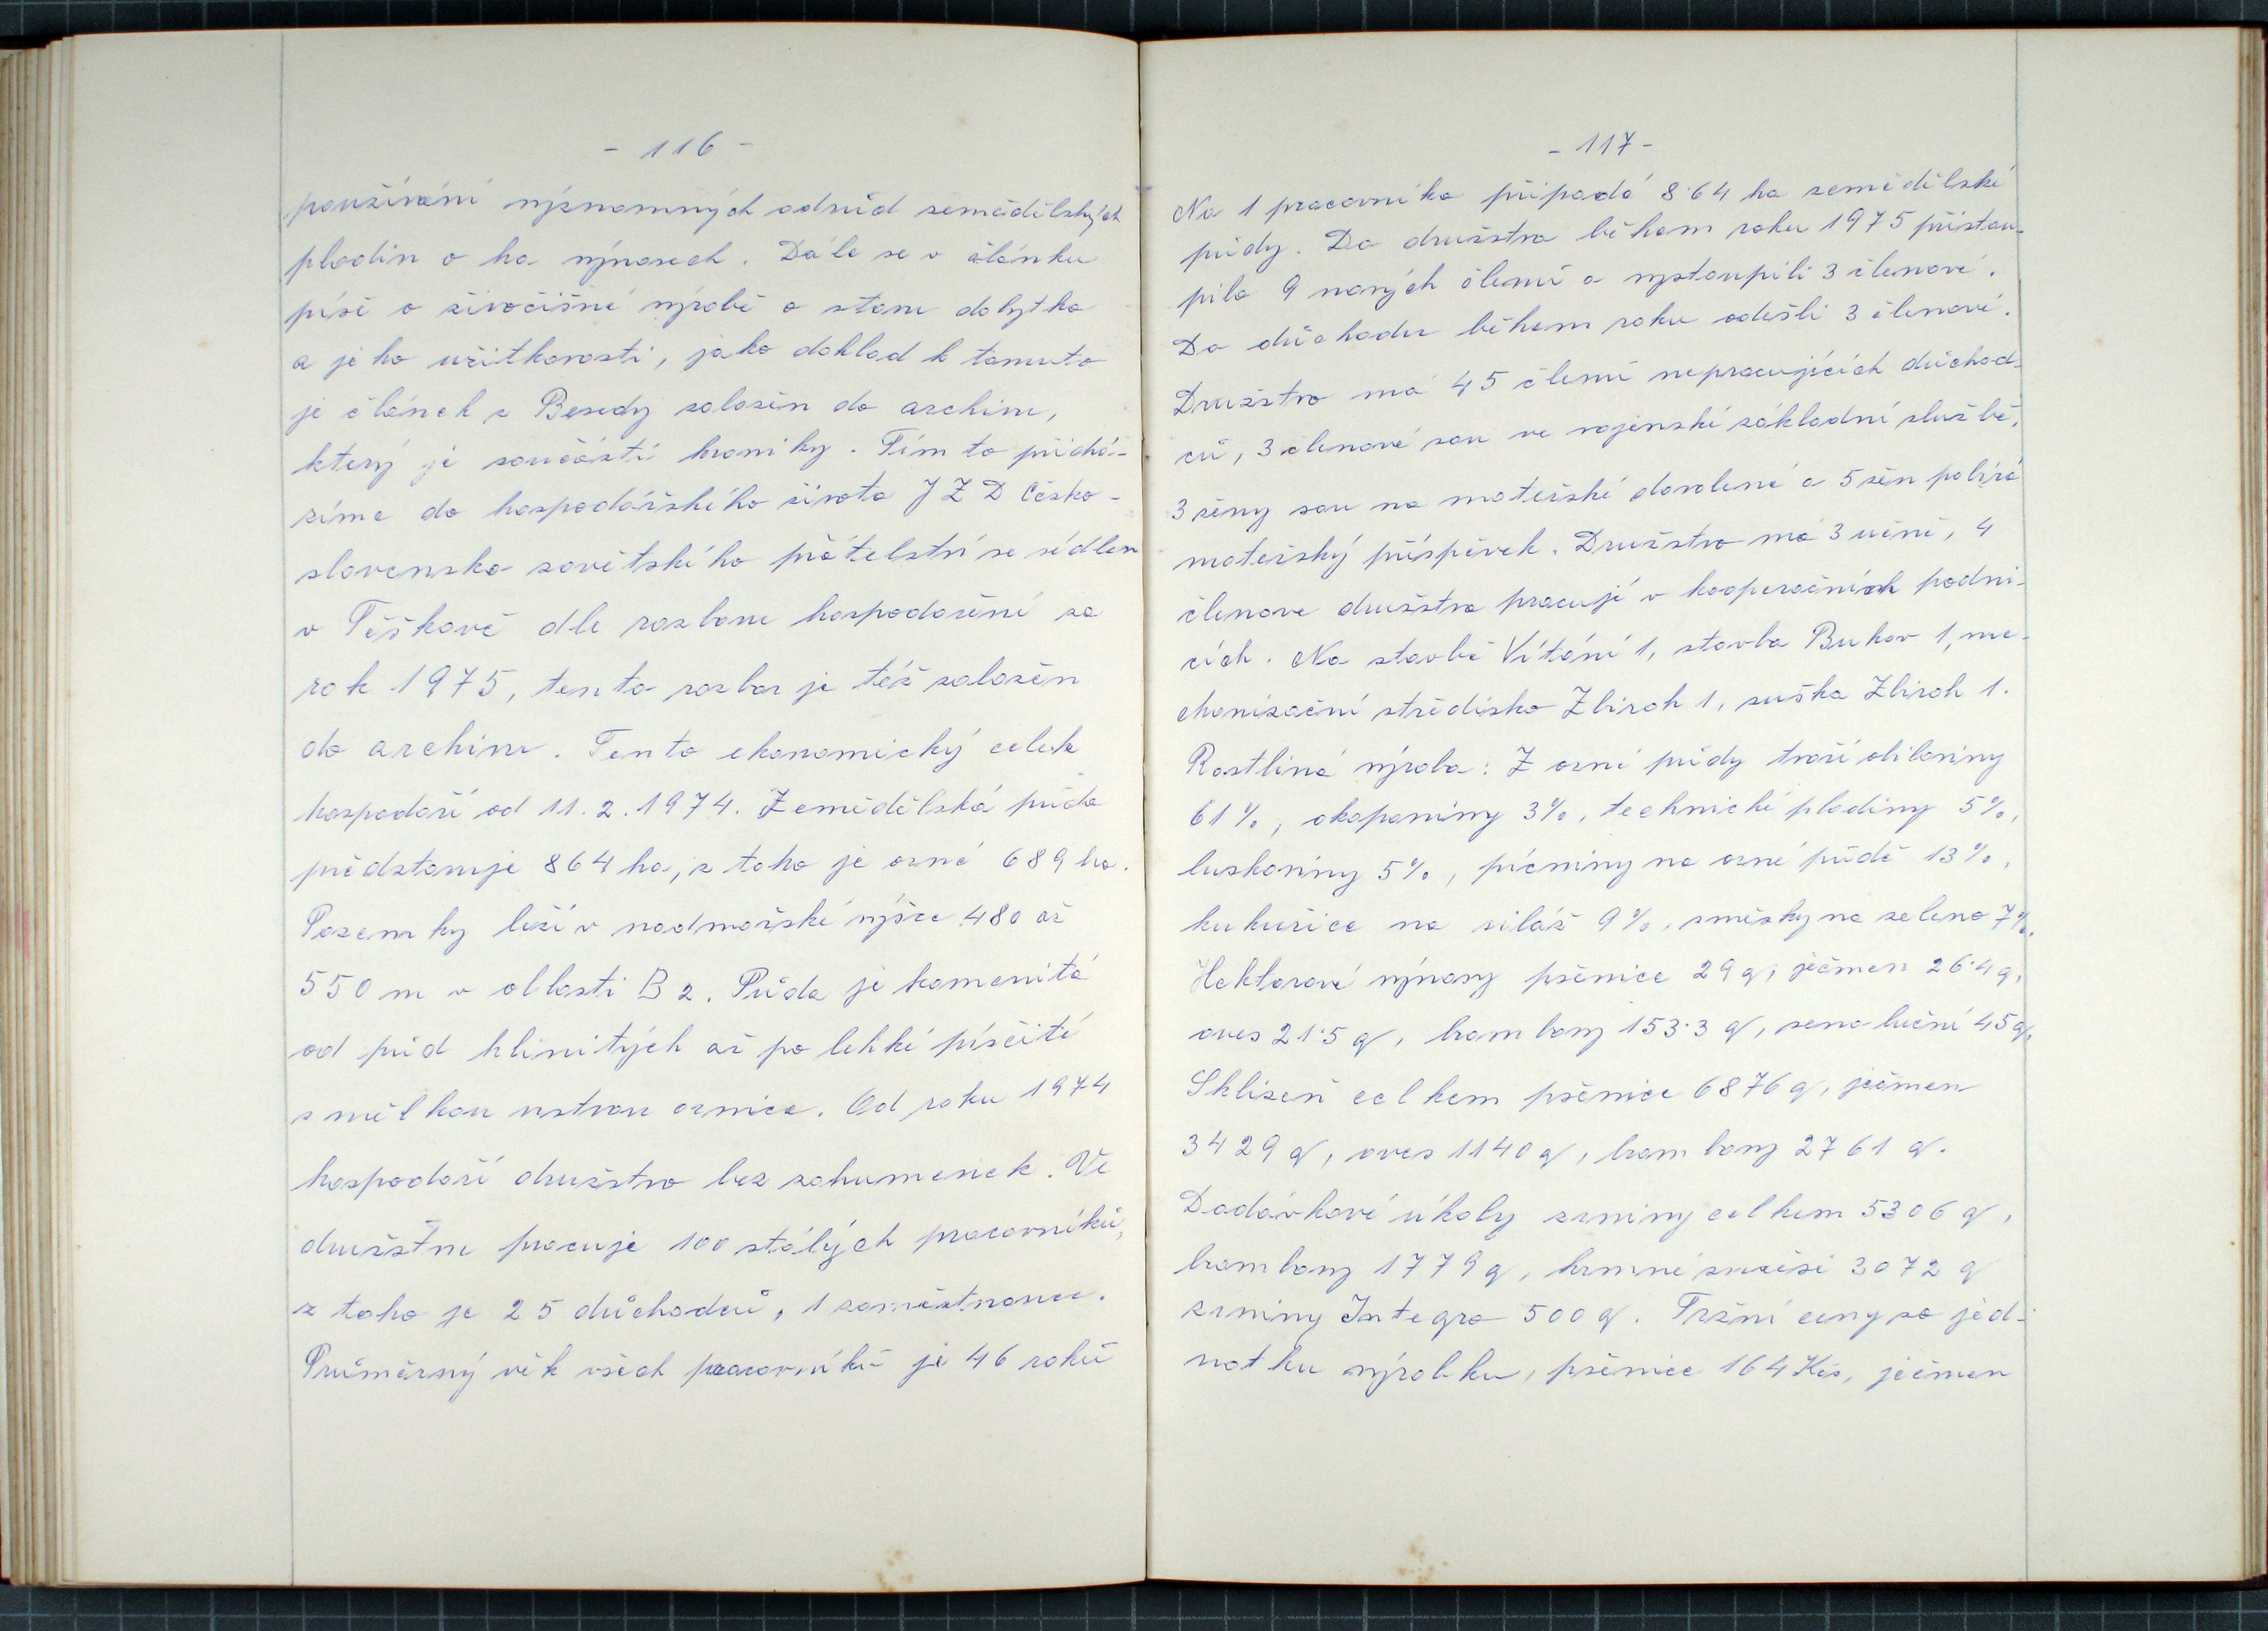 - 116 -
používání významných odrůd zemědělských
plodin o ha výnosech. Dále se v článku
píše o živočišné výrobě o stavu dobytka
a jeho užitkovosti, jako doklad k tomuto
je článek z Besedy založen do archivu,
který je součástí kroniky. Tímto přichá-
zíme do hospodářského života JZD Česko-
slovensko sovětského přátelství se sídlem
v Těškově dle rozboru hospodaření za
rok 1975, tento rozbor je též založen
do archivu. Tento ekonomický celek
hospodaří od 11.2.1974. Zemědělská půda
představuje 864 ha, z toho je orné 689 ha.
Pozemky leží v nadmořské výšce 480 až
550 m v oblasti B 2. Půda je kamenitá
od půd hlinitých až po lehké písčité
s mělkou vrstvou ornice. Od roku 1974
hospodaří družstvo bez záhumenek. Ve
družstvu pracuje 100 stálých pracovníků,
z toho je 25 důchodců, 1 zaměstnanec.
Průměrný věk všech pracovníků je 46 roků
- 117 -
Na 1 pracovníka připadá 8·64 ha zemědělské
půdy. Do družstva během roku 1975 přistou-
pilo 9 nových členů a vystoupili 3 členové.
Do důchodu během roku odešli 3 členové.
Družstvo má 45 členů nepracujících důchod-
ců, 3 členové sou ve vojenské základní službě,
3 ženy sou na mateřské dovolené a 5 žen pobírá
mateřský příspěvek. Družstvo má 3 učně, 4
členove družstva pracují v kooperačních podni-
cích. Na stavbě Vítání 1, stavba Bukov 1, me-
chanizační středisko Zbiroh 1, suška Zbiroh 1.
Rostliná výroba: Z orné půdy tvoří obiloviny
61%, okopaniny 3%, technické plodiny 5%,
luskoviny 5%, pícniny na orné půdě 13%,
kukuřice na siláž 9%, směsky na zeleno 7%.
Hektarové výnosy pšenice 29 q, ječmen 26·4 q,
oves 21·5 q, brambory 153·3 q, seno luční 45 q.
Sklizeň celkem pšenice 6876 q, ječmen
3429 q, oves 1140 q, brambory 2761 q.
Dodávkové úkoly zrniny celkem 5306 q,
brambory 1779 q, krmné směsi 3072 q
zrniny Integra 500 q. Tržní ceny za jed-
notku výrobku, pšenice 164 Kčs, ječmen